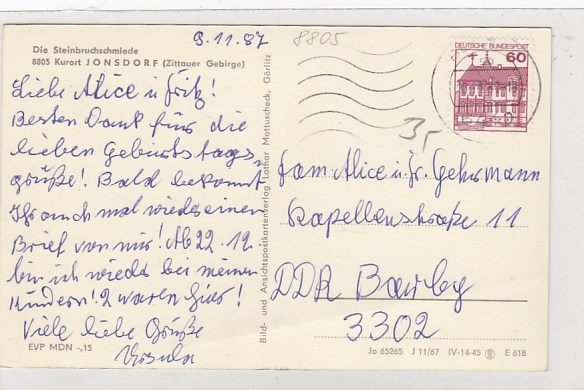 9.11.87
8805
Die Steinbruchschmiede
8805 Kurort JONSDORF (Zittauer Gebirge)
Liebe Alice u Fritz!
Besten Dank für die
lieben Geburtstags-
grüße! Bald bekommt
Ihr auch mal wieder einen
Brief von mir! Ab 22. 12.
bin ich wieder bei meinen
Kindern! 2 waren hier!
Viele liebe Grüße
Ursula
EVP MDN -,15
Bild- und Ansichtspostkartenverlag Lothar Mattuscheck, Görlitz
DEUTSCHE BUNDESPOST
60
Fam. Alice u. Fr. Gehrmann
Kapellenstraße 11
DDR Barby
3302
Jo 65265 J 11/67 IV-14-45 E 618